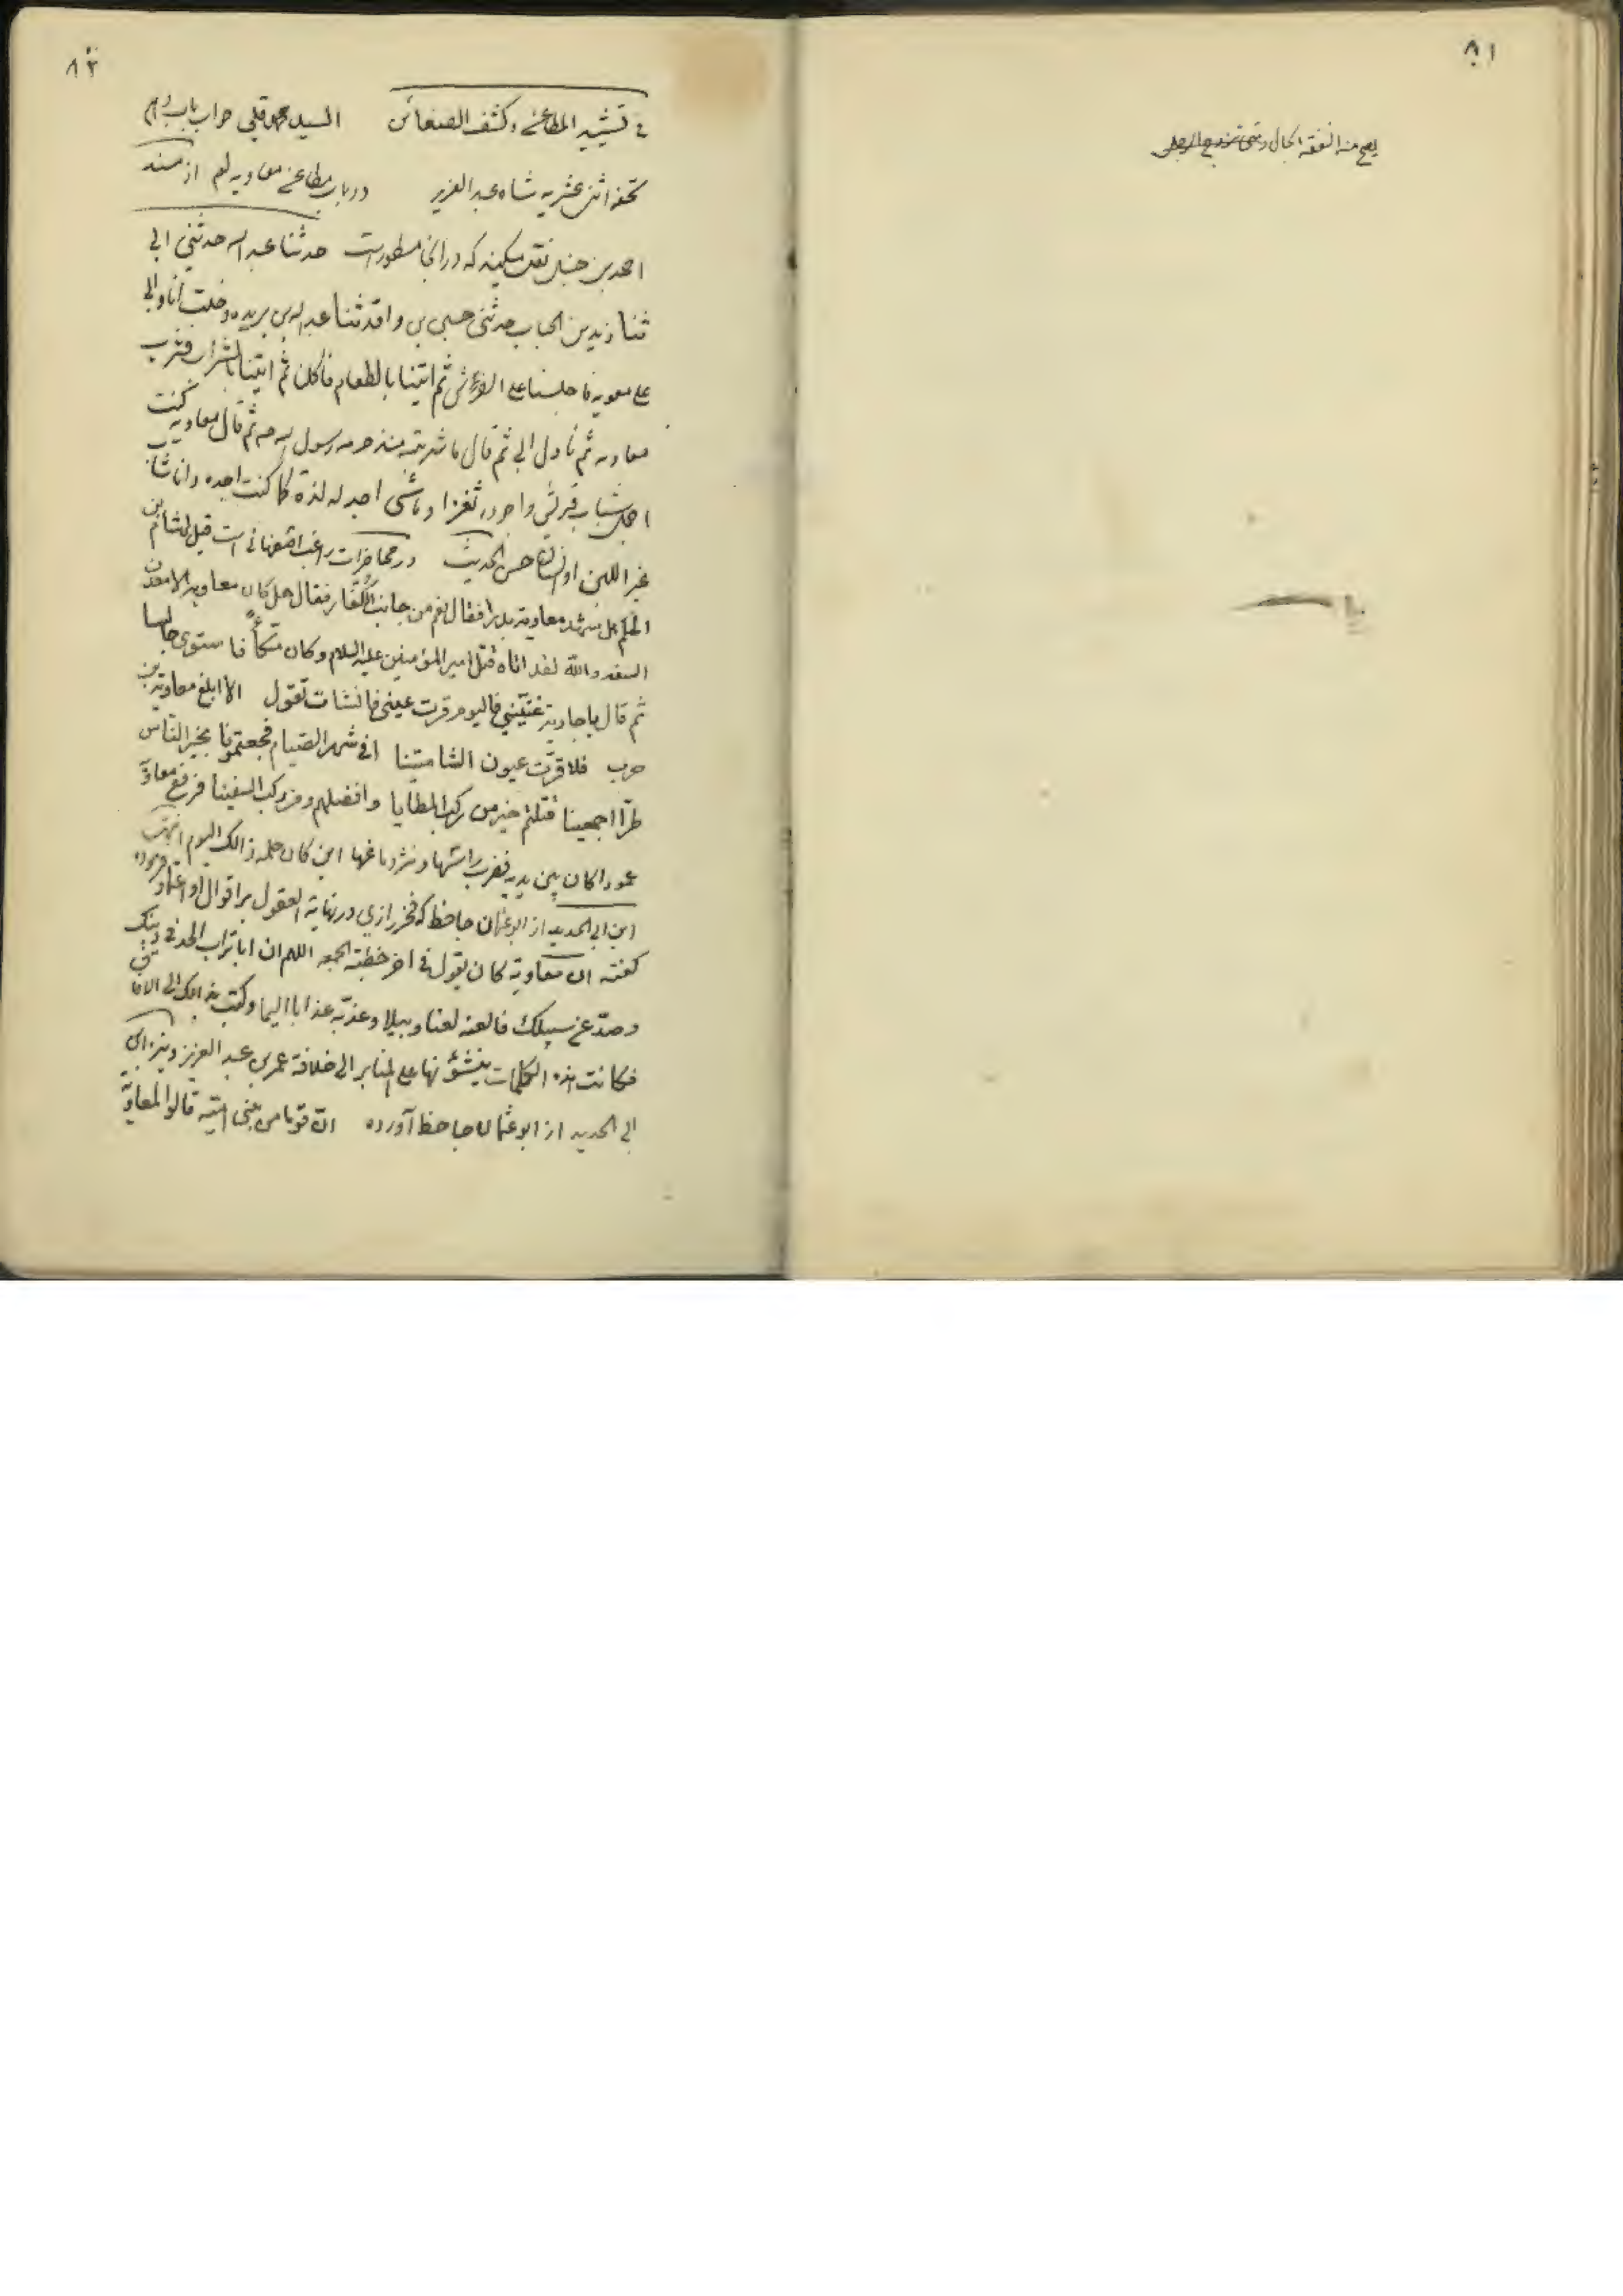 ٨١
يصح منه النفقه الحال
٨٢
في تشييد المطاعن وكشف الضغائن السيد محمد قلي جواب باب دهم
تحفه اثنى عشريه شاه عبد العزيز در باب مطاعن معاويه لعم از مسند
احمد بن حنبل نقل ميكند كه در انجا مسطور است حدثنا عبد الله حدثني ابي
ثنا زيد بن الحباب حدثنى حسين بن واقد ثنا عبد الله بن بريده دخلت انا وابي
على معويه فاجلسنا على الفرش ثم اتينا بالطعام فاكلنا ثم اتينا بالشراب فشرب
معاويه ثم ناول ابي ثم قال ما شربته منذ حرمه رسول الله ص ثم قال معاويه كنت
اجمل شباب قريش واجوده ثغرا وما شئ اجد له لذة كما كنت اجده وانا شاب
غير اللبن او انسان حسن الحديث در محاضرات راغب اصفهانى است قيل لهشام بن
الحكم هل شهد معاوية بدرا فقال نعم من جانب الكفار فقال هل كان معاوية الا معدن
السفه والله لقد اتاه قتل امير المؤمنين عليه السلام وكان متكأً فاستوى جالسا
ثم قال يا جارية غنّيني فاليوم قرت عينى فانشات تقول الا ابلغ معاوية بن
حرب فلا قرّت عيون الشامتينا افى شهر الصيام فجعتمونا بخير الناس
طرّا اجمعينا قتلتم خير من ركب المطايا وافضلهم ومن ركب السفينا فرفع معاوية
عمودا كان بين يديه فضرب راسها ونثر دماغها اين كان حلمه ذالك اليوم انتهى
ابن ابى الحديد از ابو عثمان جاحظ كه فخر رازي در نهاية العقول بر اقوال او اعتماد نموده
گفته ان معاوية كان يقول فى اخر خطبة الجمعه اللهم ان ابا تراب الحد فى دينك
وصدّ عن سبيلك فالعنه لعنا وبيلا وعذبّه عذابا اليما وكتب بذالك الى الافاق
فكانت هذه الكلمات على المنابر الى خلافة عمر بن عبد العزيز ونيز ابن
ابى الحديد از ابو عثمان جاحظ آورده انّ قوما من بنى اميّه قالوا لمعاوية